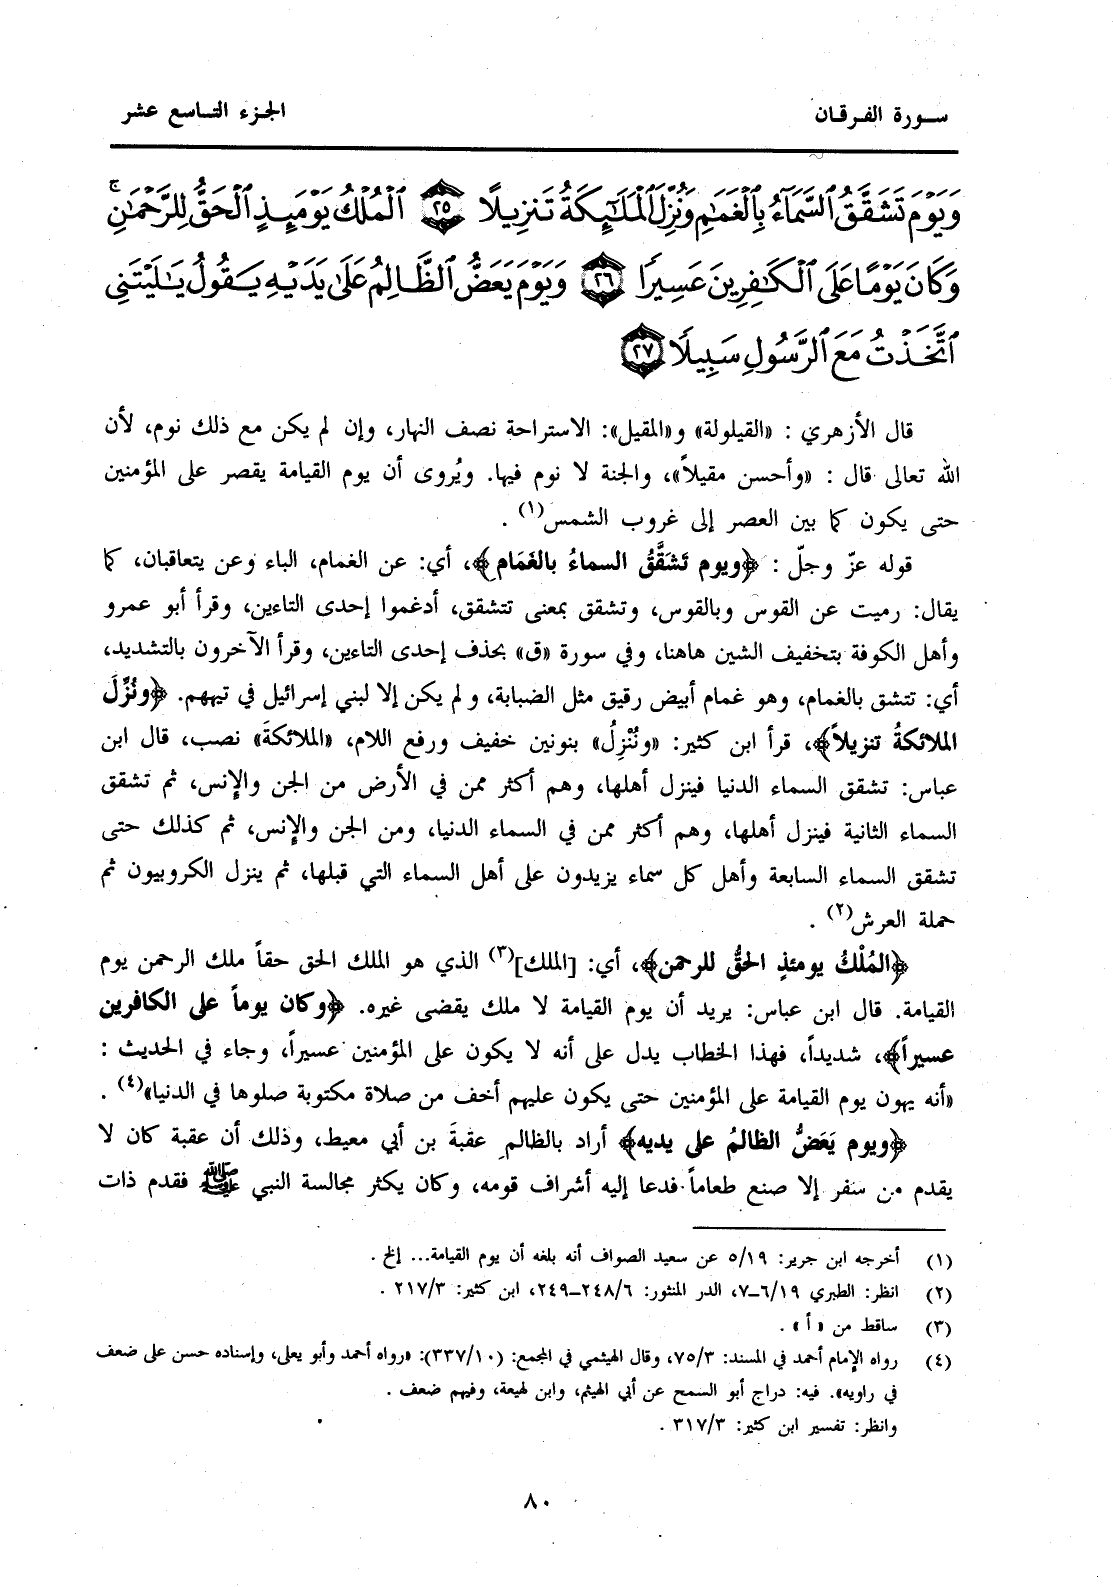 سورة الفرقان
الجزء التاسع عشر
وَيَوْمَ تَشَقَّقُ ٱلسَّمَآءُ بِٱلْغَمَٰمِ وَنُزِّلَ ٱلْمَلَٰٓئِكَةُ تَنزِيلًا ۝٢٥ ٱلْمُلْكُ يَوْمَئِذٍ ٱلْحَقُّ لِلرَّحْمَٰنِ ۚ
وَكَانَ يَوْمًا عَلَى ٱلْكَٰفِرِينَ عَسِيرًا ۝٢٦ وَيَوْمَ يَعَضُّ ٱلظَّالِمُ عَلَىٰ يَدَيْهِ يَقُولُ يَٰلَيْتَنِى
ٱتَّخَذْتُ مَعَ ٱلرَّسُولِ سَبِيلًا ۝٢٧
قال الأزهري : «القيلولة» و«المقيل»: الاستراحة نصف النهار، وإن لم يكن مع ذلك نوم، لأن
الله تعالى قال : «وأحسن مقيلاً»، والجنة لا نوم فيها. ويُروى أن يوم القيامة يقصر على المؤمنين
حتى يكون كما بين العصر إلى غروب الشمس(١) .
قوله عزّ وجلّ : ﴿ويوم تَشَقَّقُ السماءُ بالغَمَام﴾، أي: عن الغمام، الباء وعن يتعاقبان، كما
يقال: رميت عن القوس وبالقوس، وتشقق بمعنى تتشقق، أدغموا إحدى التاءين، وقرأ أبو عمرو
وأهل الكوفة بتخفيف الشين هاهنا، وفي سورة «ق» بحذف إحدى التاءين، وقرأ الآخرون بالتشديد،
أي: تتشق بالغمام، وهو غمام أبيض رقيق مثل الضبابة، و لم يكن إلا لبني إسرائيل في تيههم. ﴿ونُزِّلَ
الملائكةُ تنزيلاً﴾، قرأ ابن كثير: «ونُنْزِلُ» بنونين خفيف ورفع اللام، «الملائكةَ» نصب، قال ابن
عباس: تشقق السماء الدنيا فينزل أهلها، وهم أكثر ممن في الأرض من الجن والإنس، ثم تشقق
السماء الثانية فينزل أهلها، وهم أكثر ممن في السماء الدنيا، ومن الجن والإنس، ثم كذلك حتى
تشقق السماء السابعة وأهل كل سماء يزيدون على أهل السماء التي قبلها، ثم ينزل الكروبيون ثم
حملة العرش(٢) .
﴿المُلْكُ يومئذٍ الحقُّ للرحمن﴾، أي: [الملك](٣) الذي هو الملك الحق حقاً ملك الرحمن يوم
القيامة. قال ابن عباس: يريد أن يوم القيامة لا ملك يقضى غيره. ﴿وكان يوماً على الكافرين
عسيراً﴾، شديداً، فهذا الخطاب يدل على أنه لا يكون على المؤمنين عسيراً، وجاء في الحديث :
«أنه يهون يوم القيامة على المؤمنين حتى يكون عليهم أخف من صلاة مكتوبة صلوها في الدنيا»(٤) .
﴿ويوم يَعَضُّ الظالمُ على يديه﴾ أراد بالظالم عقبةَ بن أبي معيط، وذلك أن عقبة كان لا
يقدم من سفر إلا صنع طعاماً فدعا إليه أشراف قومه، وكان يكثر مجالسة النبي ﷺ فقدم ذات
(١) أخرجه ابن جرير: ٥/١٩ عن سعيد الصواف أنه بلغه أن يوم القيامة... إلخ .
(٢) انظر: الطبري ٦/١٩_٧، الدر المنثور: ٢٤٨/٦_٢٤٩، ابن كثير: ٢١٧/٣ .
(٣) ساقط من «أ» .
(٤) رواه الإمام أحمد في المسند: ٧٥/٣، وقال الهيثمي في المجمع: (٣٣٧/١٠): «رواه أحمد وأبو يعلى، وإسناده حسن على ضعف
في راويه». فيه: دراج أبو السمح عن أبي الهيثم، وابن لهيعة، وفيهم ضعف .
وانظر: تفسير ابن كثير: ٣١٧/٣ .
٨٠